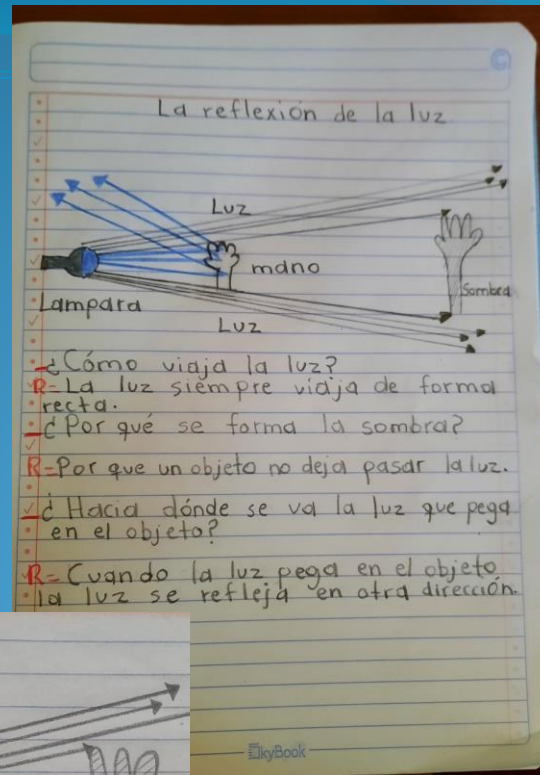 La reflexión de la luz
Luz
mano
Sombra
Lampara
Luz
-¿Cómo viaja la luz?
R=La luz siempre viaja de forma
recta.
-¿Por qué se forma la sombra?
R=Por que un objeto no deja pasar la luz.
-¿Hacia dónde se va la luz que pega
en el objeto?
R=Cuando la luz pega en el objeto
la luz se refleja en otra dirección.
SkyBook